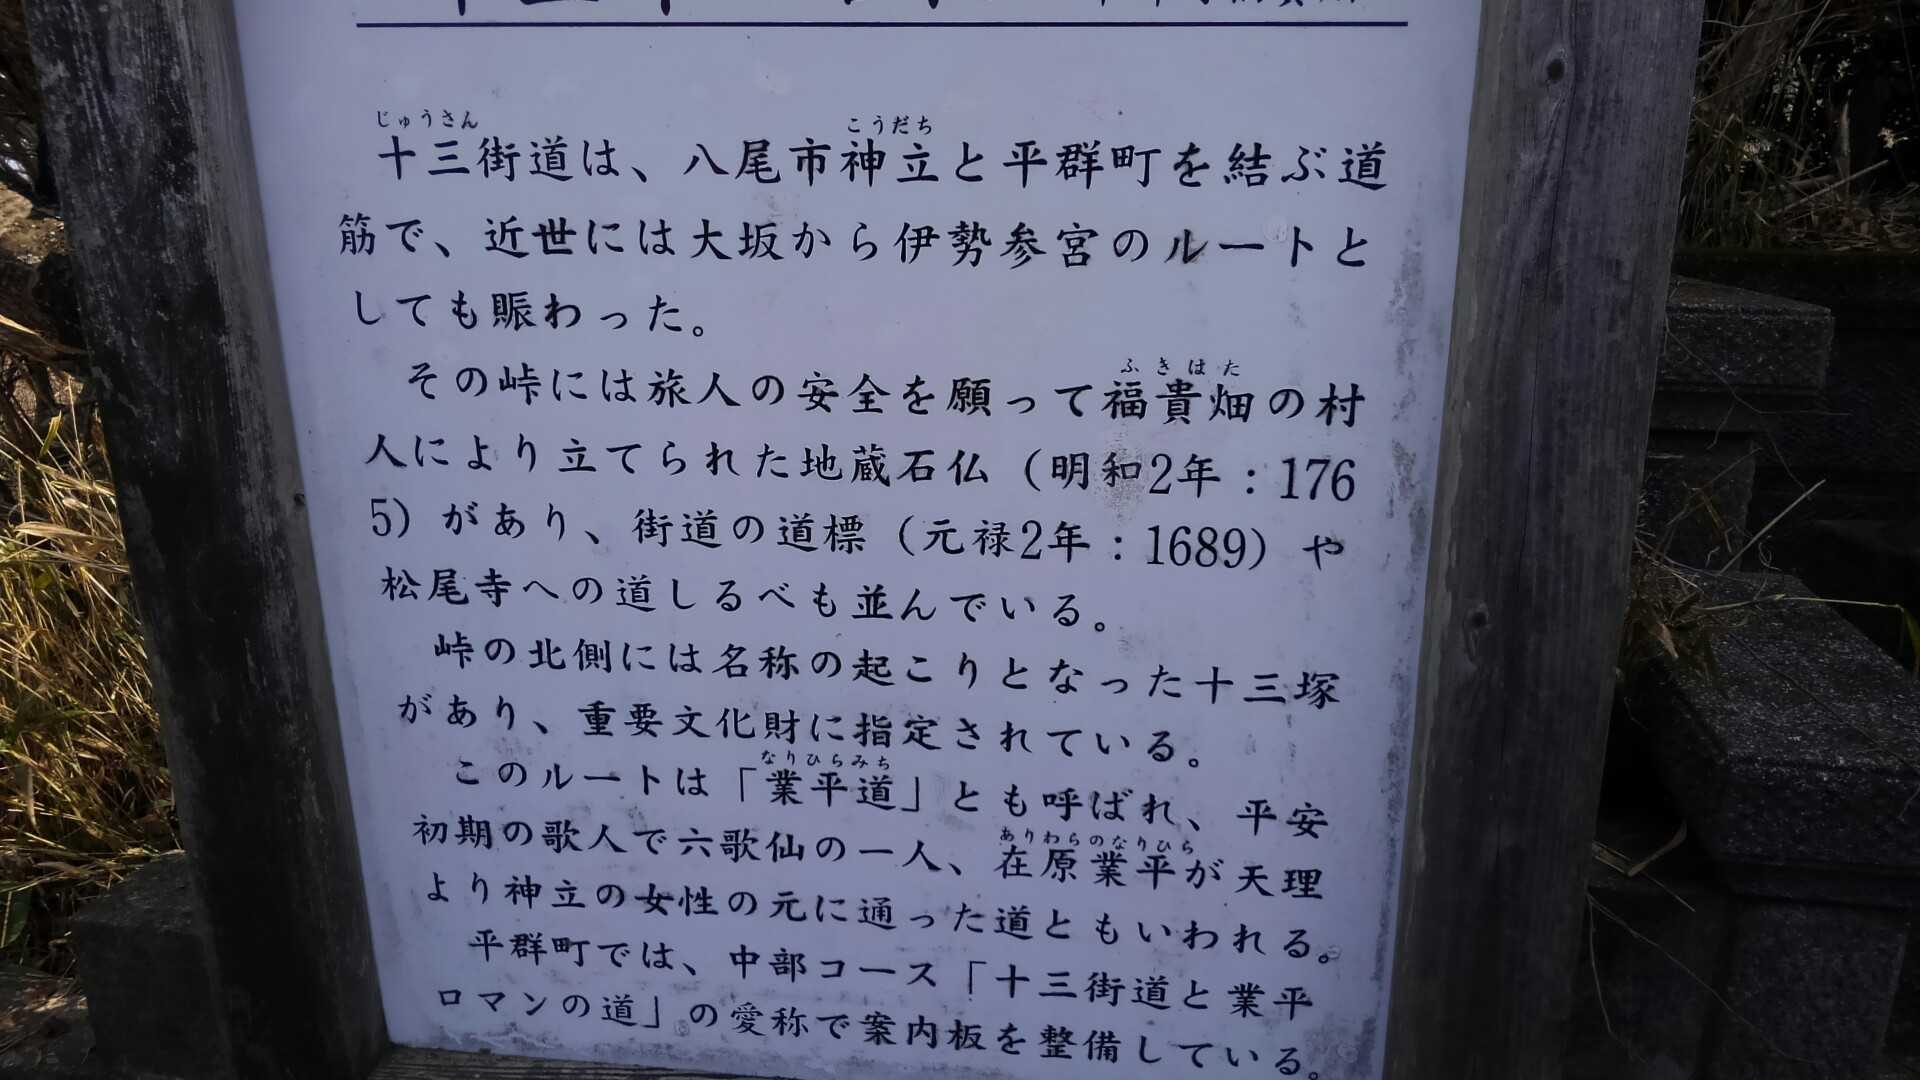 じゅうさん こうだち
十三街道は、八尾市神立と平群町を結ぶ道
筋で、近世には大坂から伊勢参宮のルートと
しても賑わった。
ふきはた
その峠には旅人の安全を願って福貴畑の村
人により立てられた地蔵石仏（明和2年：176
5）があり、街道の道標（元禄2年：1689）や
松尾寺への道しるべも並んでいる。
峠の北側には名称の起こりとなった十三塚
があり、重要文化財に指定されている。
なりひらみち
このルートは「業平道」とも呼ばれ、平安
ありわらのなりひら
初期の歌人で六歌仙の一人、在原業平が天理
より神立の女性の元に通った道ともいわれる。
平群町では、中部コース「十三街道と業平
ロマンの道」の愛称で案内板を整備している。